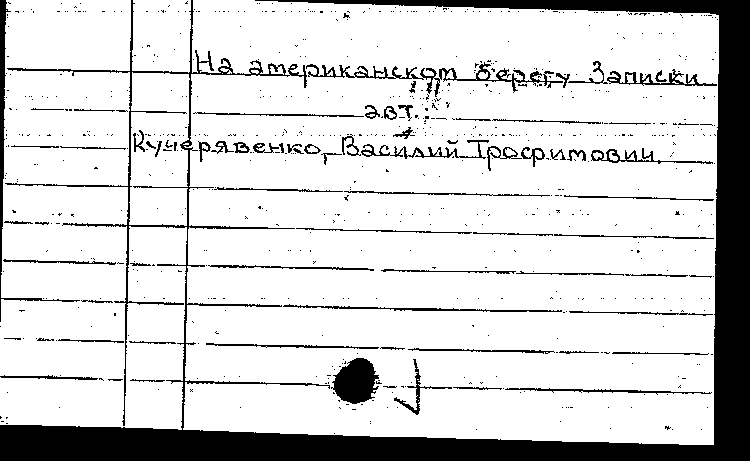 На американском берегу Записки
авт.
Кучерявенко, Василий Трофимович.